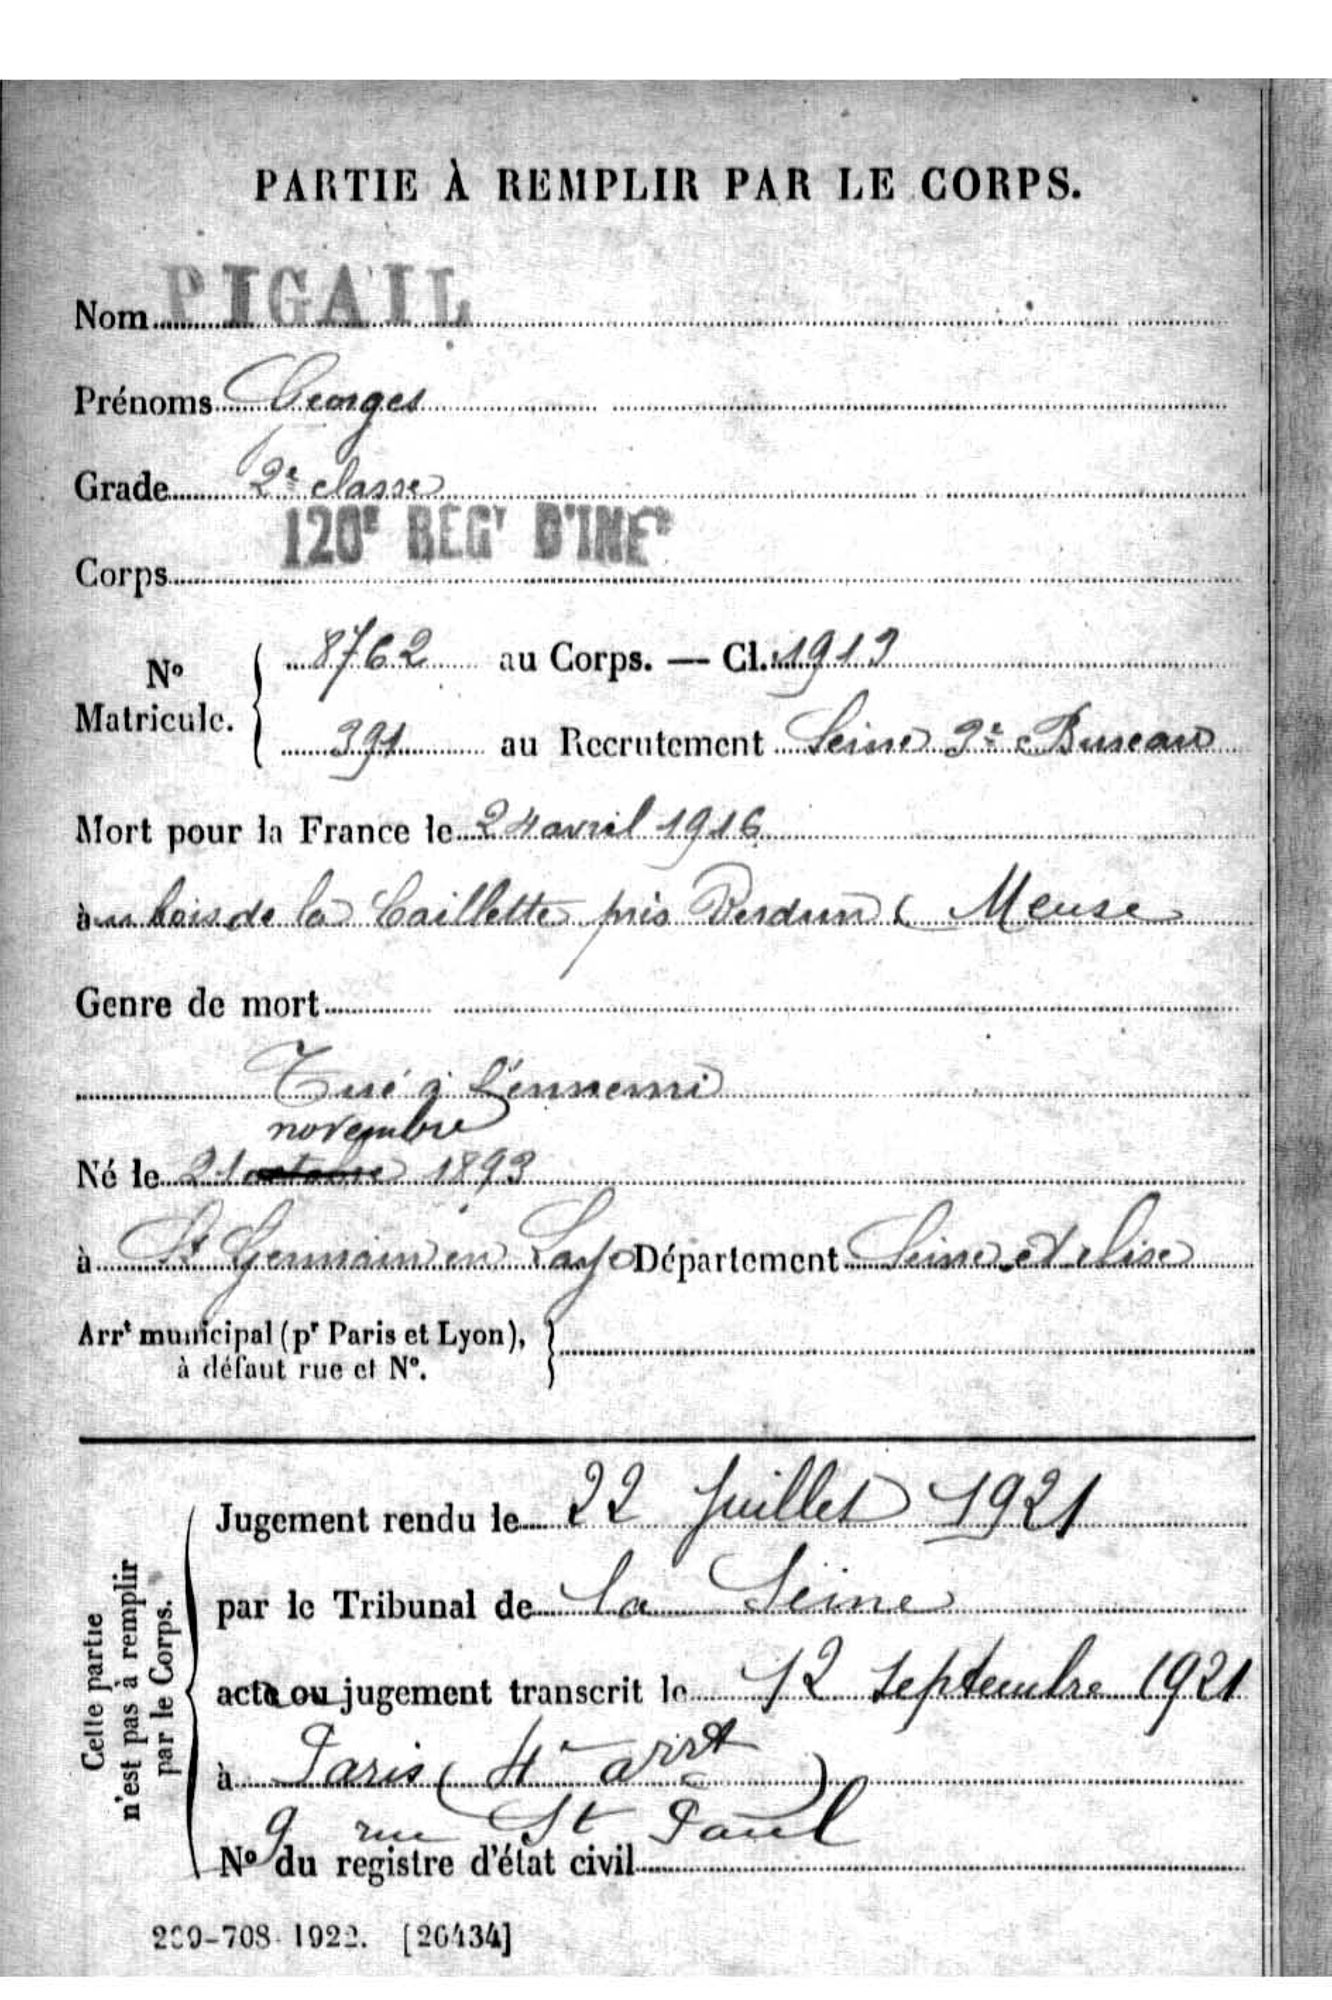 PARTIE À REMPLIR PAR LE CORPS.
Nom PIGAIL
Prénoms Georges
Grade 2e classe
Corps 120E REGT D'INFIE
No Matricule. 8762 au Corps. — Cl. 1913
391 au Recrutement Seine 3e Bureau
Mort pour la France le 24 avril 1916
à au bois de la Caillette près Verdun (Meuse
Genre de mort
Tué à l'ennemi
novembre
Né le 21 octobre 1893
à St Germain en Laye Département Seine et Oise
Arrt municipal (pr Paris et Lyon),
à défaut rue et No.
Cette partie
n'est pas à remplir
par le Corps.
Jugement rendu le 22 Juillet 1921
par le Tribunal de la Seine
acte ou jugement transcrit le 12 septembre 1921
à Paris (4e arrt)
9 rue St Paul
No du registre d'état civil
-708- 1922. [26434]